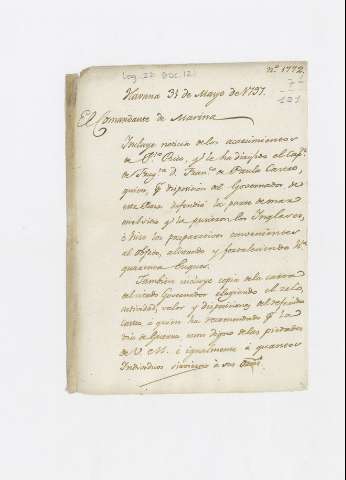 Leg. 22 Doc. 12
nº 1772.
7
121
Havana 31 de Mayo de 1797.
El Comandante de Marina
Incluye noticia de los acaecimientos
de Pto Rico, qe le ha dirigido el Capn
de Fragta D. Franco de Paula Castro,
quien, pr disposicion del Governador de
esta Plaza defendió la parte de mar
qe le pusieron los Ingleses,
é hizo los preparativos convenientes
al objeto, alistando y fortaleciendo
quarenta buques.
Tambien incluye copia de la carta
del citado Governador elogiando el zelo,
actividad, valor y disposiciones del referido
Castro á quien ha recomendado pr la
via de Guerra como digno de las piedades
de V. M. é igualmente á quantos
Individuos sirvieron á sus